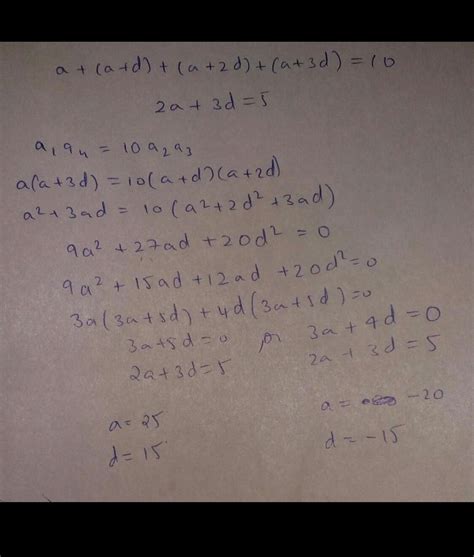 a + (a+d) + (a+2d) + (a+3d) = 10
2a + 3d = 5
a₁a₄ = 10a₂a₃
a(a+3d) = 10(a+d)(a+2d)
a² + 3ad = 10(a²+2d²+3ad)
9a² + 27ad + 20d² = 0
9a² + 15ad + 12ad + 20d² = 0
3a(3a+5d) + 4d(3a+5d) = 0
3a+5d = 0 or 3a + 4d = 0
2a+3d = 5 2a + 3d = 5
a = 25 a = -20
d = 15 d = -15